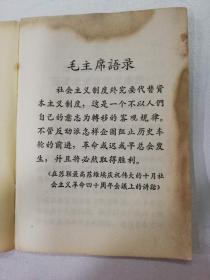 毛主席語录
社会主义制度终究要代替資
本主义制度，这是一个不以人們
自己的意志为轉移的客观規律。
不管反动派怎样企图阻止历史車
輪的前进，革命或迟或早总会发
生，并且将必然取得胜利。
《在苏联最高苏維埃庆祝伟大的十月社
会主义革命四十周年会议上的讲話》